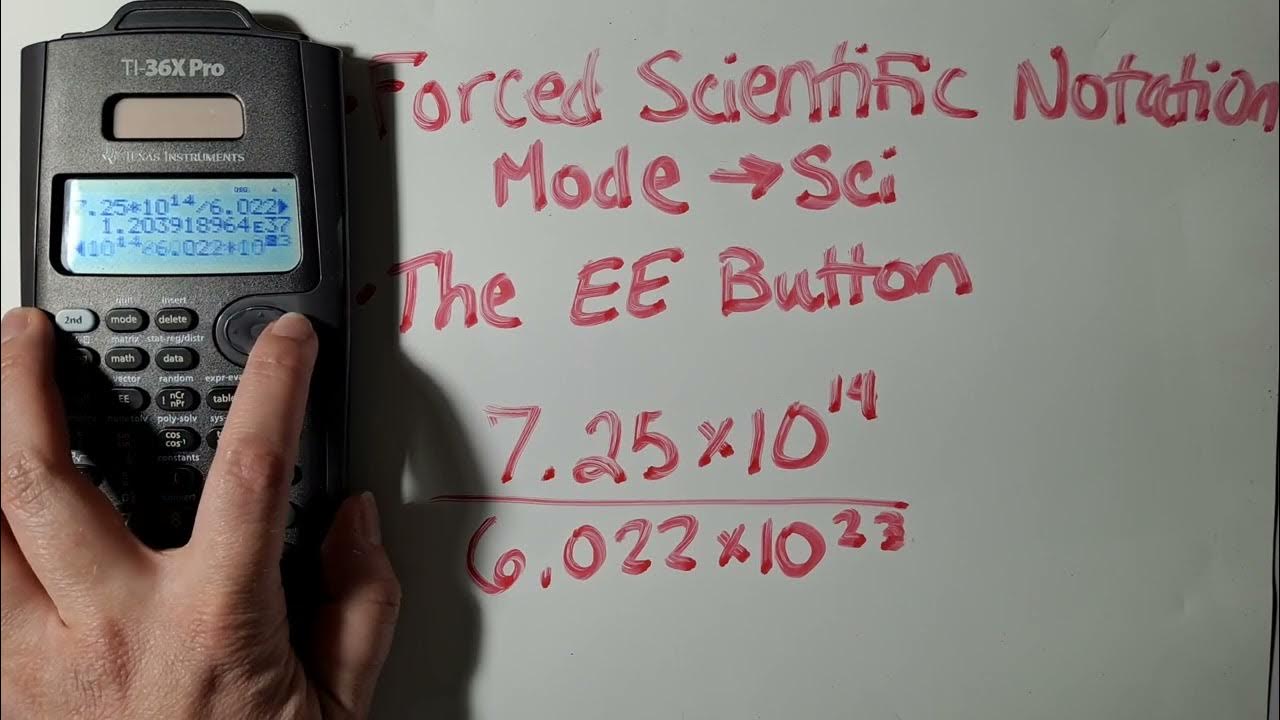 TI-36X Pro
TEXAS INSTRUMENTS
DEG
7.25*10¹⁴/6.022▶
1.203918964E37
◀10¹⁴/6.022*10²³
2nd
quit
mode
insert
delete
matrix
math
stat-reg/distr
data
vector
EE
random
! nCr nPr
expr-eva
table
num-solv
poly-solv
cos cos⁻¹
sys-
constants
• Forced Scientific Notation
Mode → Sci
• The EE Button
7.25×10¹⁴
6.022×10²³